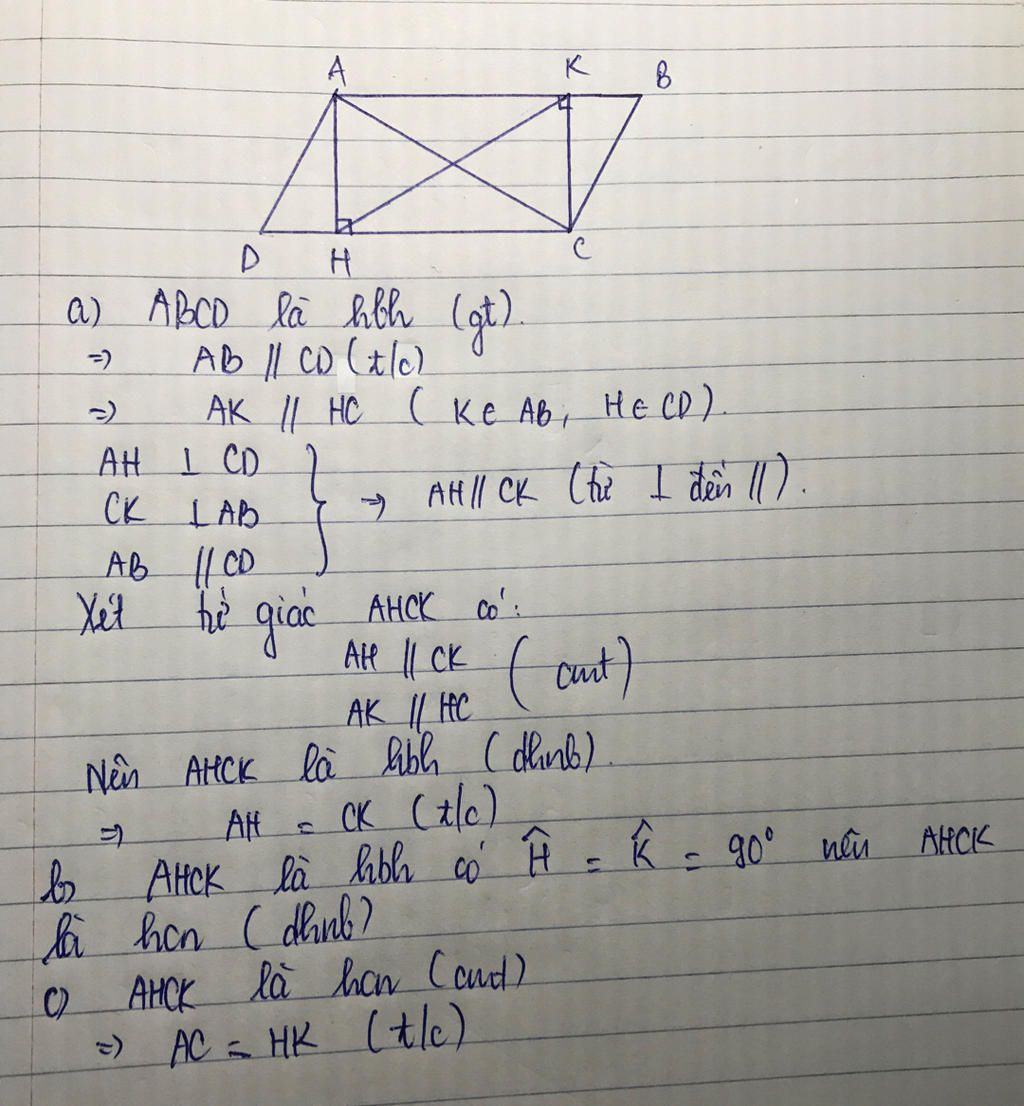 A K B
D H C
a) ABCD là hbh (gt).
=> AB // CD (t/c)
=> AK // HC ( K ∈ AB, H ∈ CD).
AH ⊥ CD
CK ⊥ AB
AB // CD
} => AH // CK (từ ⊥ đến //).
Xét tứ giác AHCK có:
AH // CK
AK // HC
( cmt)
Nên AHCK là hbh ( dhnb).
=> AH = CK (t/c)
b) AHCK là hbh có Ĥ = K̂ = 90° nên AHCK
là hcn ( dhnb)
c) AHCK là hcn (cmt)
=> AC = HK (t/c)